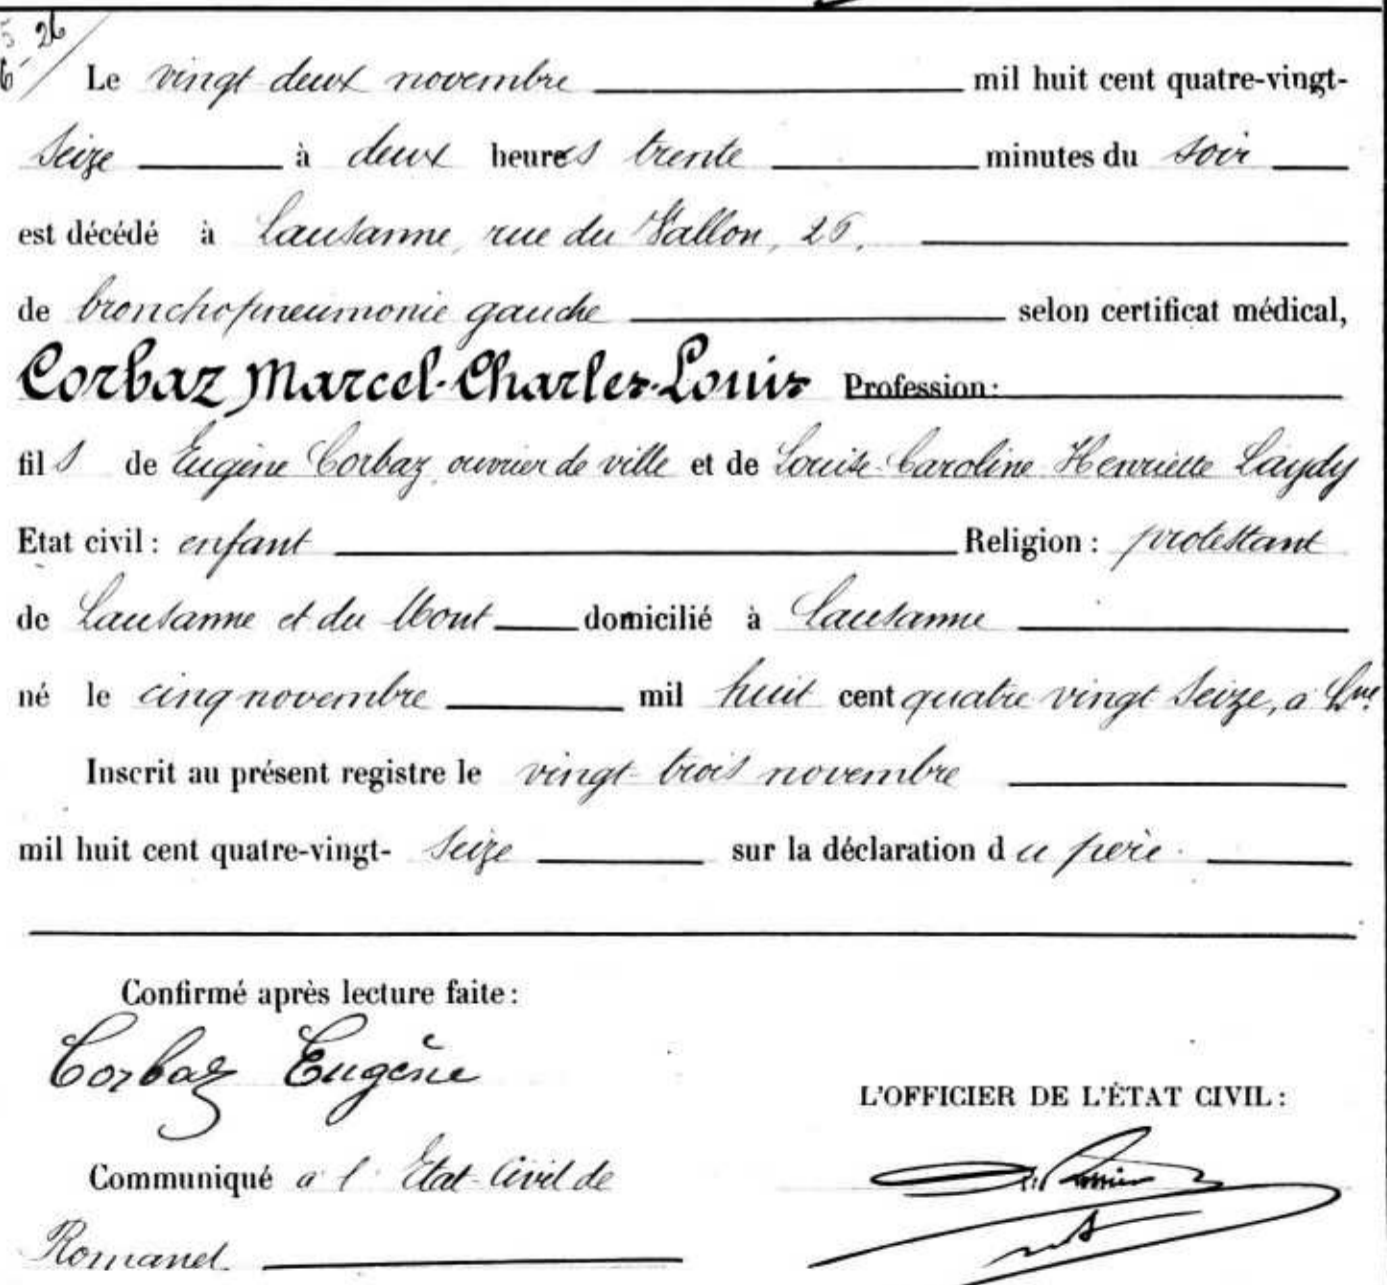 26
Le vingt deux novembre mil huit cent quatre-vingt-
seize à deux heures trente minutes du soir
est décédé à Lausanne, rue du Vallon, 26,
de bronchopneumonie gauche selon certificat médical,
Corbaz Marcel-Charles-Louis Profession:
fils de Eugène Corbaz, ouvrier de ville et de Louise Caroline Henriette Laydy
Etat civil: enfant Religion: protestant
de Lausanne et du Mont domicilié à Lausanne
né le cinq novembre mil huit cent quatre vingt seize, à Lne.
Inscrit au présent registre le vingt-trois novembre
mil huit cent quatre-vingt- seize sur la déclaration du père.
Confirmé après lecture faite:
Corbaz Eugène
L'OFFICIER DE L'ÉTAT CIVIL:
Communiqué à l'Etat-Civil de
Romanel